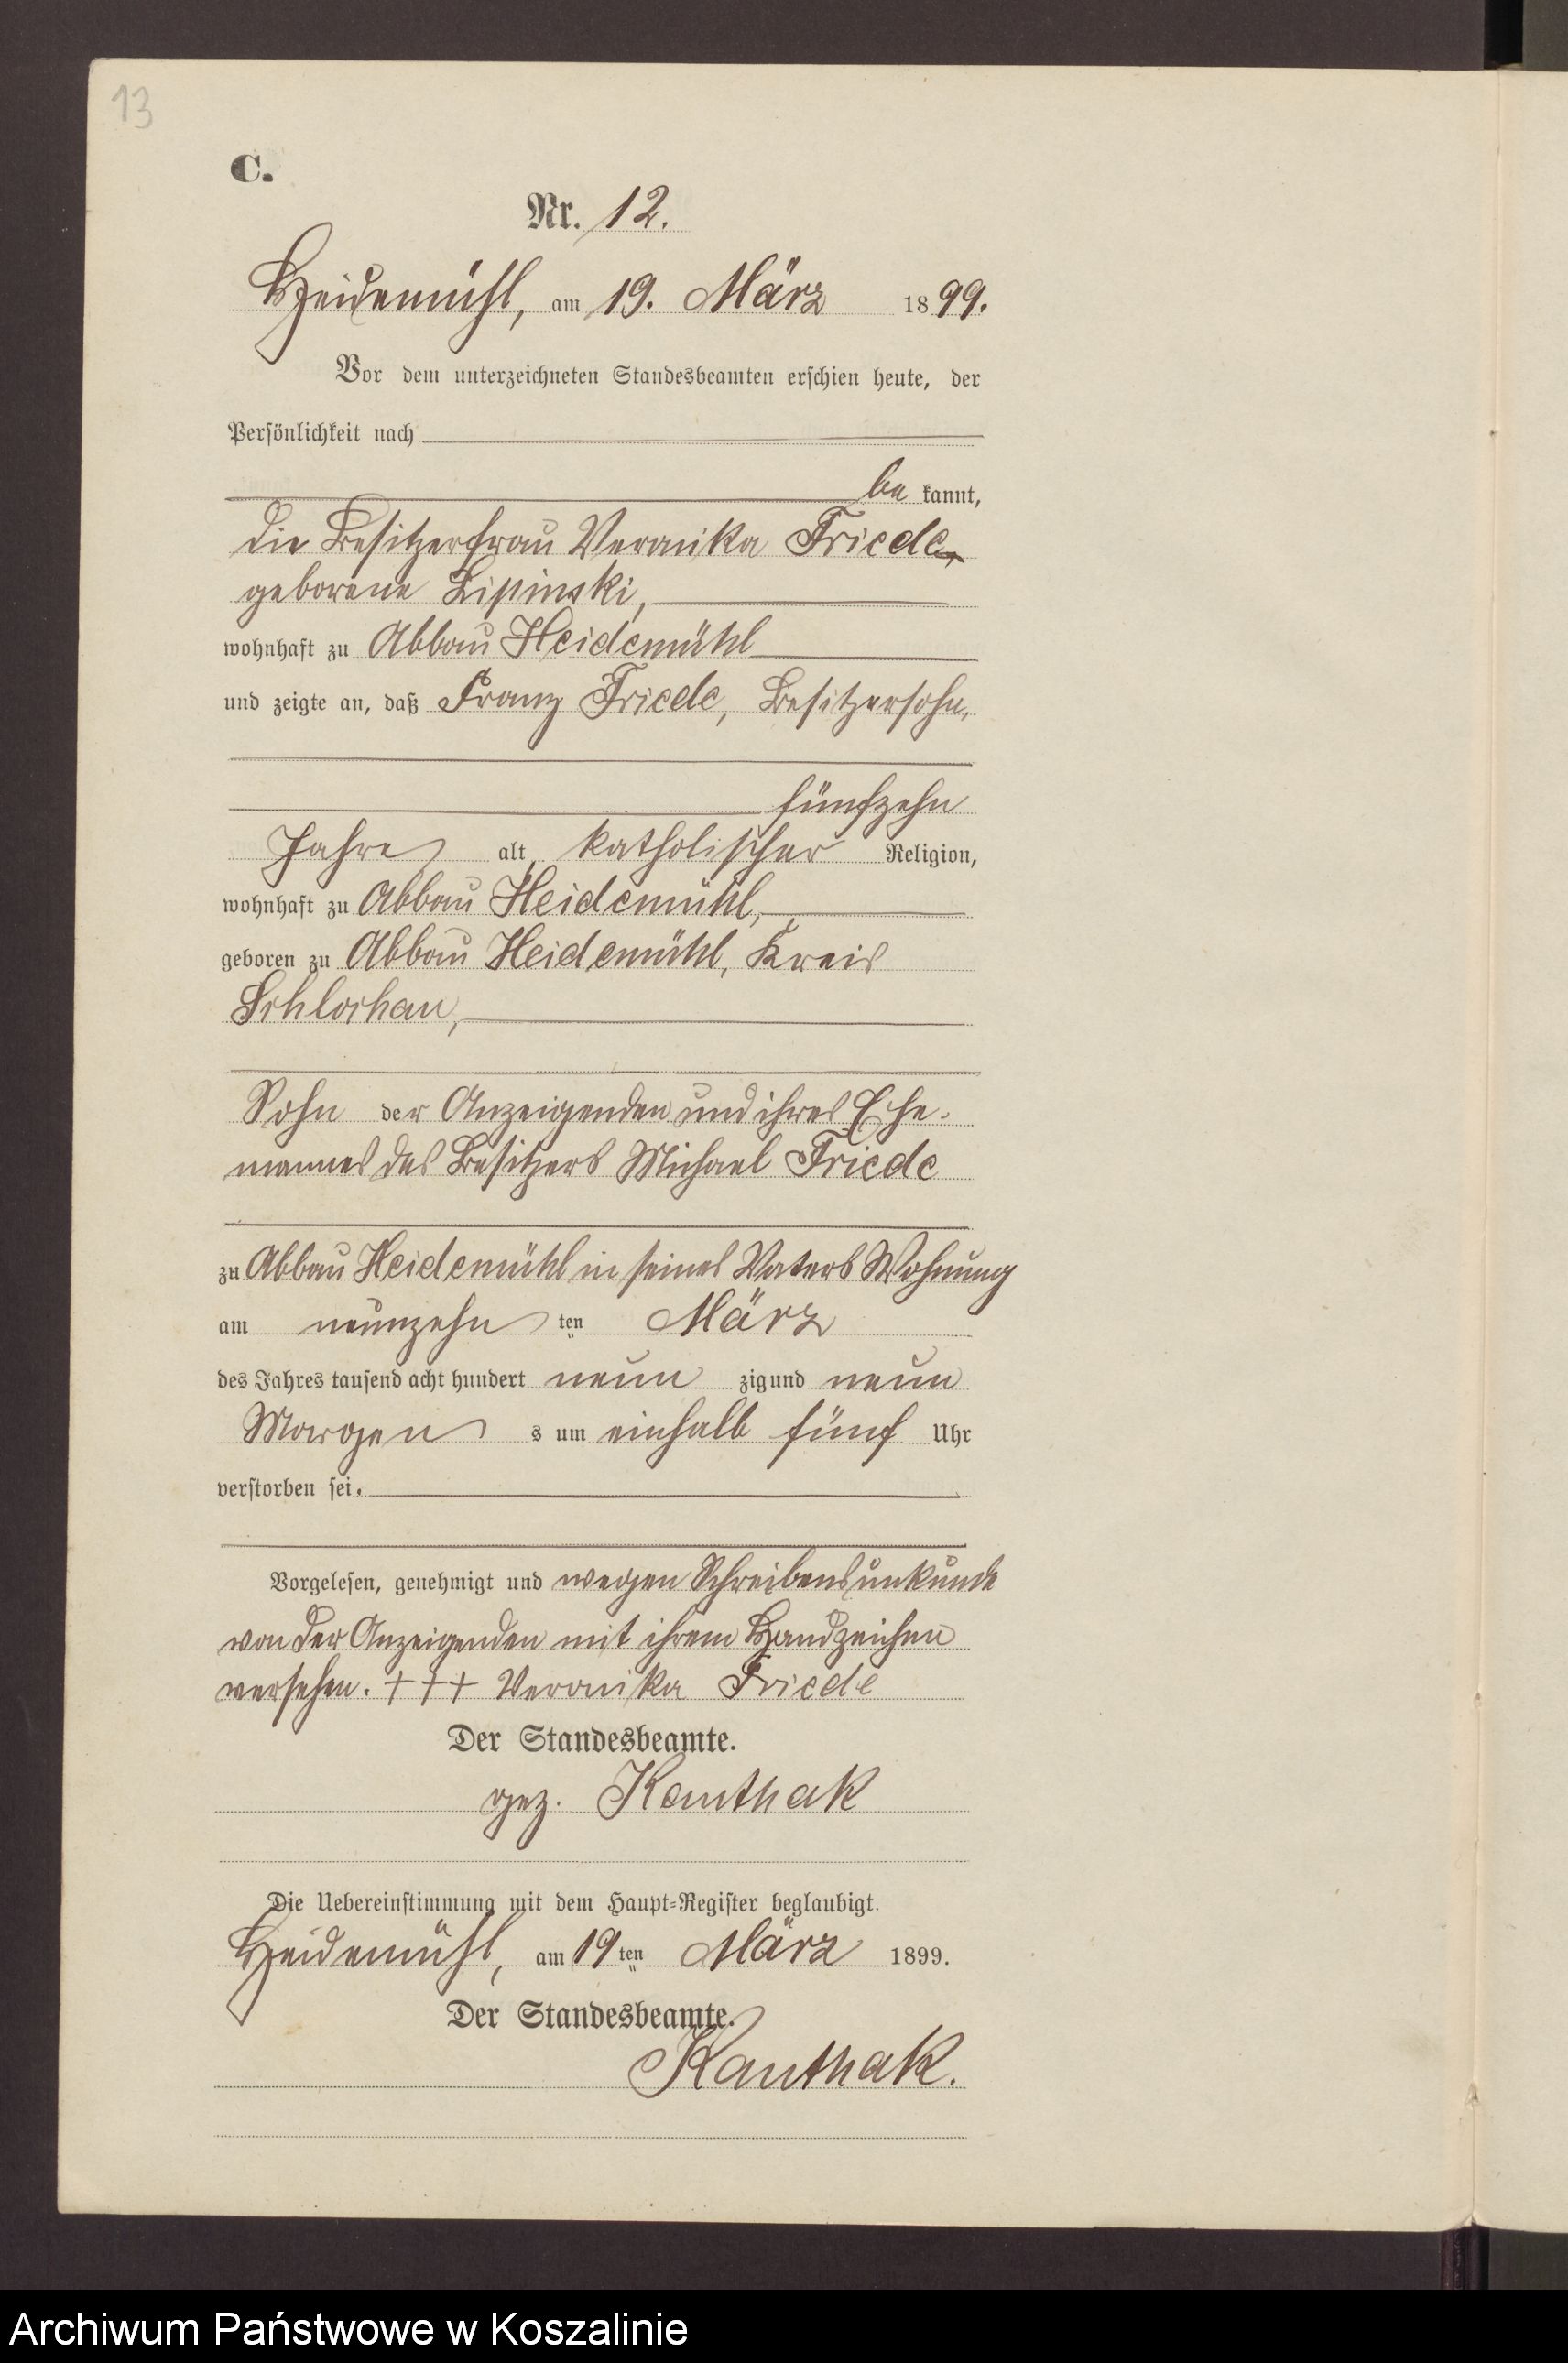 13
C.
Nr. 12.
Heidemühl, am 19. März 1899.
Vor dem unterzeichneten Standesbeamten erschien heute, der
Persönlichkeit nach
be kannt,
die Besitzerfrau Veronika Friede,
geborene Lipinski,
wohnhaft zu Abbau Heidemühl
und zeigte an, daß Franz Friede, Besitzersohn,
fünfzehn
Jahre alt, katholischer Religion,
wohnhaft zu Abbau Heidemühl,
geboren zu Abbau Heidemühl, Kreis
Schlochau,
Sohn der Anzeigenden und ihres Ehe-
mannes des Besitzers Michael Friede
zu Abbau Heidemühl in seines Vaters Wohnung
am neunzehn ten März
des Jahres tausend acht hundert neun zig und neun
Morgen s um einhalb fünf Uhr
verstorben sei.
Vorgelesen, genehmigt und wegen Schreibensunkunde
von der Anzeigenden mit ihrem Handzeichen
versehen. +++ Veronika Friede
Der Standesbeamte.
gez. Kanthak
Die Uebereinstimmung mit dem Haupt-Register beglaubigt.
Heidemühl, am 19 ten März 1899.
Der Standesbeamte.
Kanthak.
Archiwum Państwowe w Koszalinie